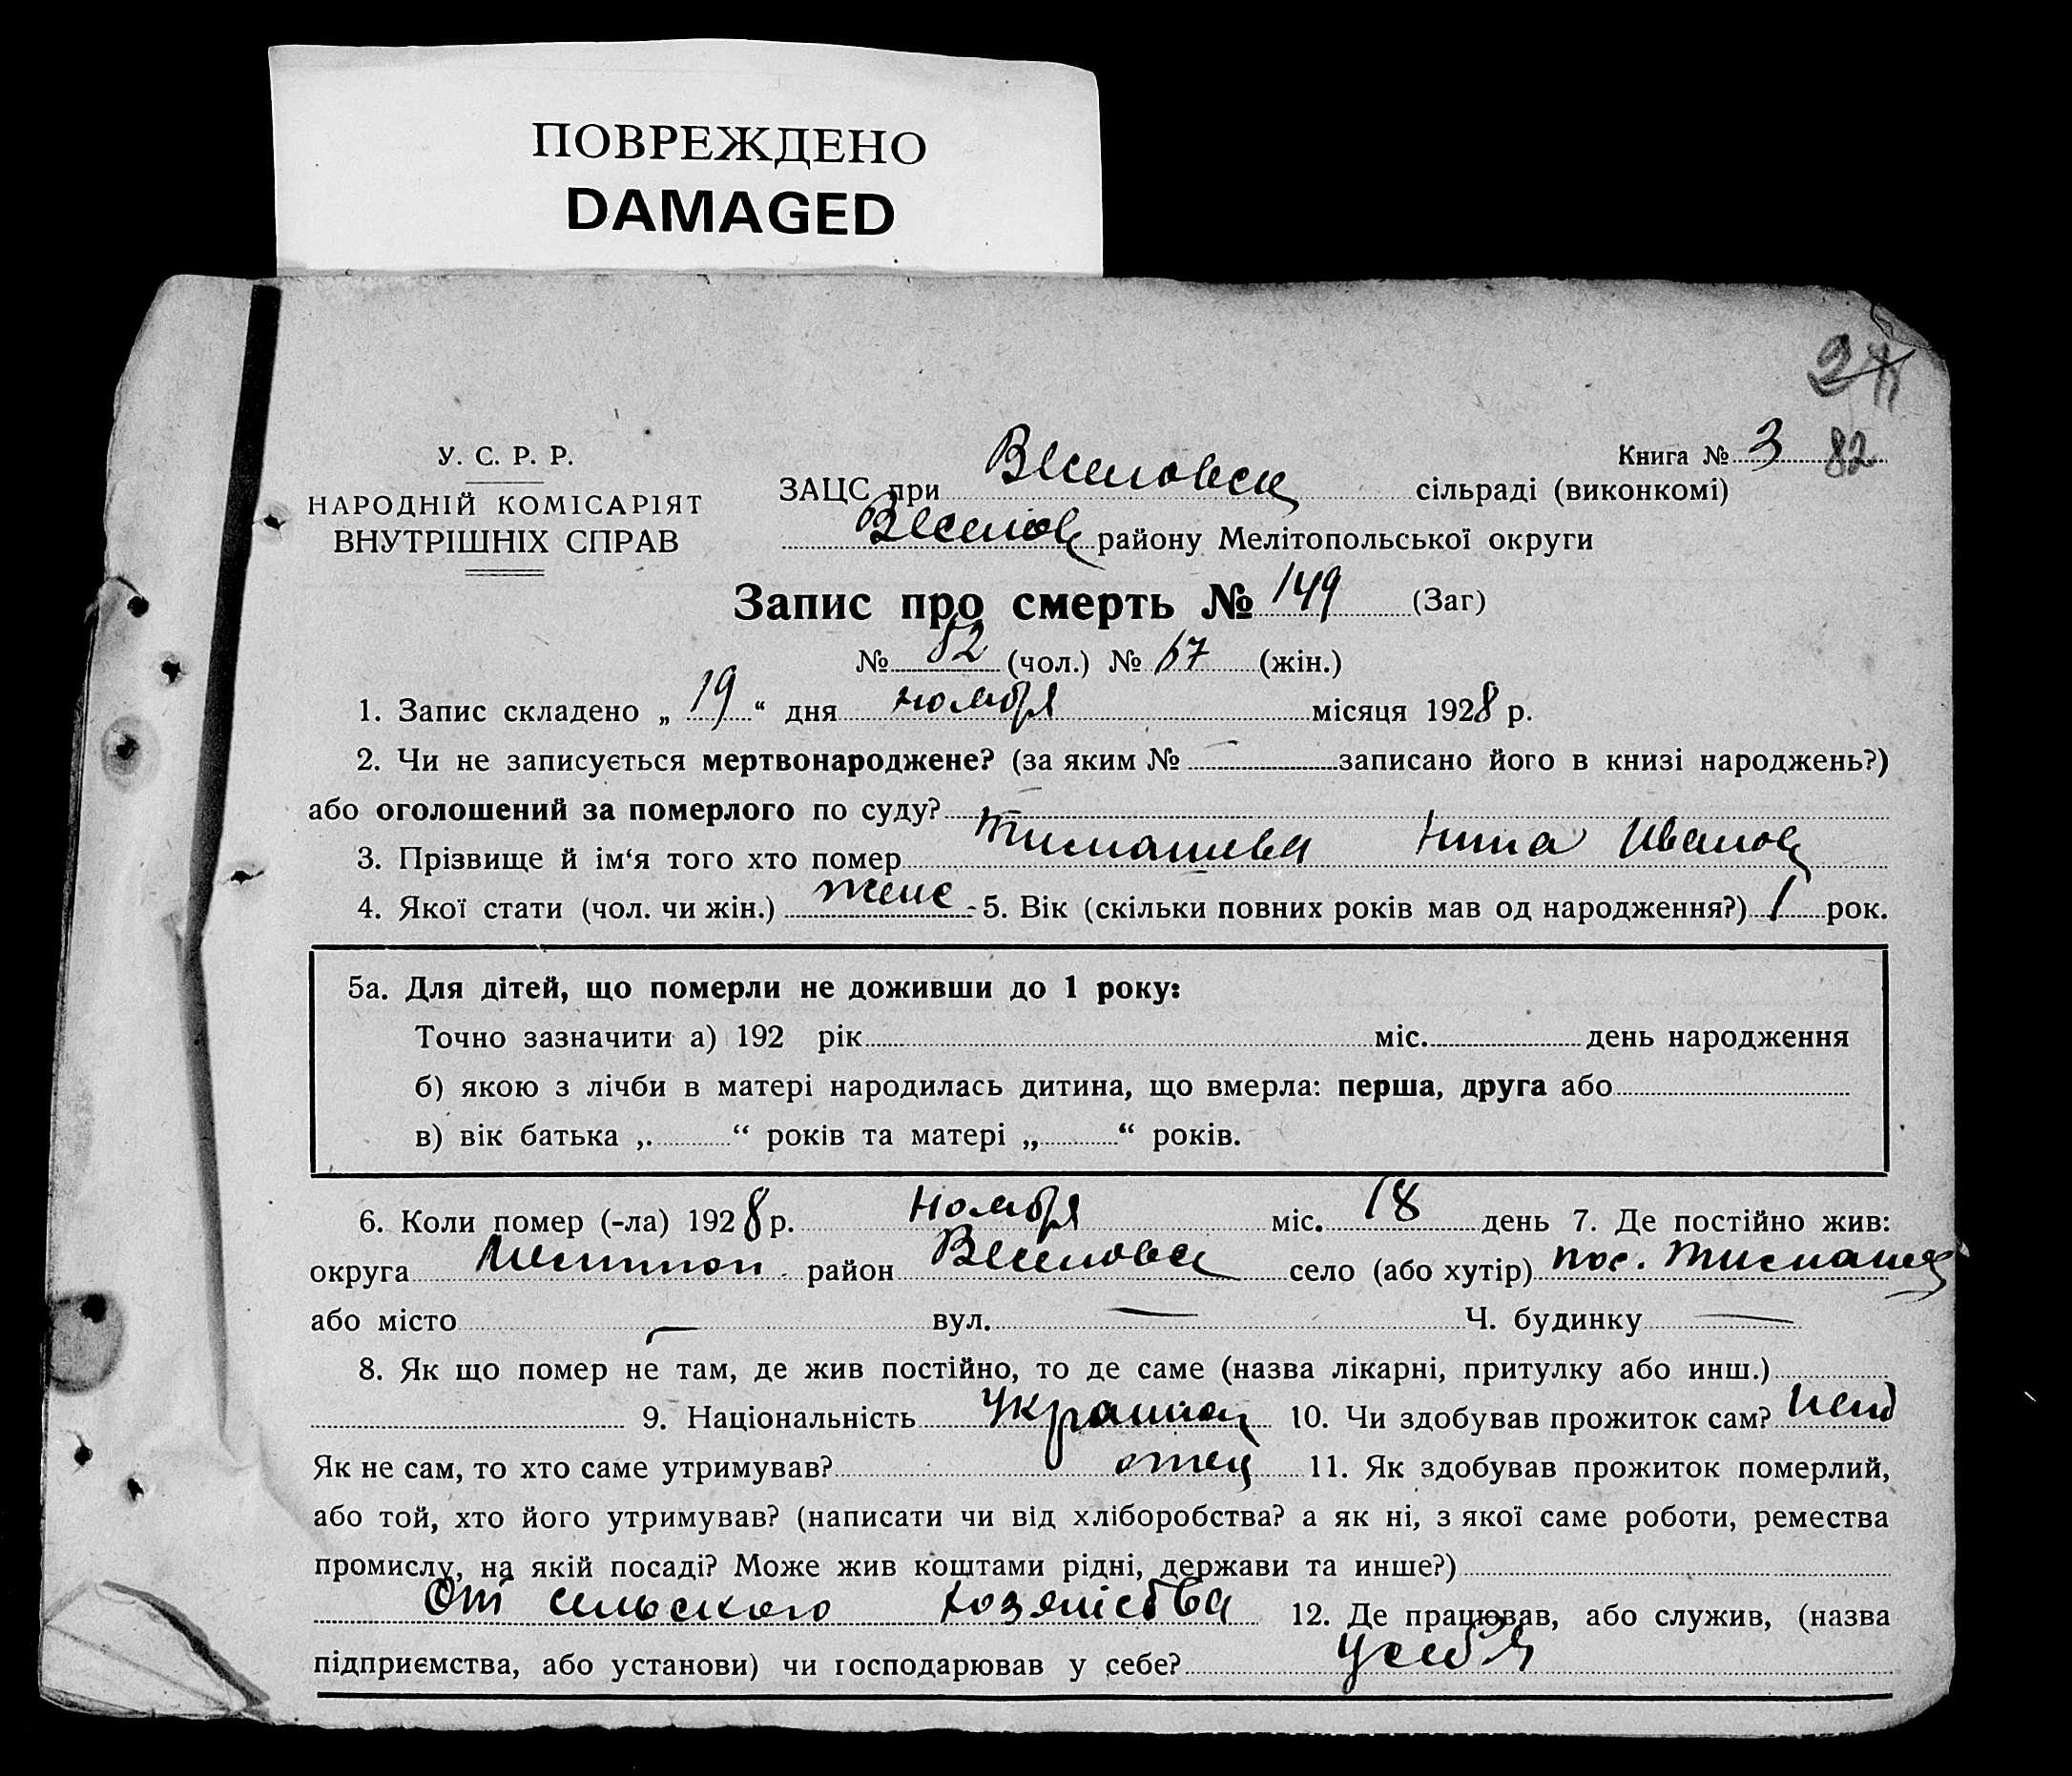 ПОВРЕЖДЕНО
DAMAGED
У. С. Р. Р.
НАРОДНІЙ КОМІСАРІЯТ
ВНУТРІШНІХ СПРАВ
Книга № 3 82
ЗАЦС при Веселовск сільраді (виконкомі)
Веселов району Мелітопольської округи
Запис про смерть № 149 (Заг)
№ 82 (чол.) № 67 (жін.)
1. Запис складено „ 19 “ дня ноября місяця 1928 р.
2. Чи не записується мертвонароджене? (за яким № — записано його в книзі народжень?)
або оголошений за померлого по суду? —
3. Прізвище й ім‘я того хто помер Тимашева Нина Иванов
4. Якої стати (чол. чи жін.) женс 5. Вік (скільки повних років мав од народження?) 1 рок.
5а. Для дітей, що померли не доживши до 1 року:
Точно зазначити а) 192 рік міс. день народження
б) якою з лічби в матері народилась дитина, що вмерла: перша, друга або
в) вік батька „ “ років та матері „ “ років.
6. Коли помер (-ла) 1928 р. ноября міс. 18 день 7. Де постійно жив:
округа Мелитоп. район Веселовск село (або хутір) пос. Тимашев
або місто — вул. — Ч. будинку —
8. Як що помер не там, де жив постійно, то де саме (назва лікарні, притулку або инш.)
9. Національність Украинк 10. Чи здобував прожиток сам?
Як не сам, то хто саме утримував? отец 11. Як здобував прожиток померлий,
або той, хто його утримував? (написати чи від хліборобства? а як ні, з якої саме роботи, ремества
промислу, на якій посаді? Може жив коштами рідні, держави та инше?)
От сельского хозяйства 12. Де працював, або служив, (назва
підприємства, або установи) чи господарював у себе? у себя